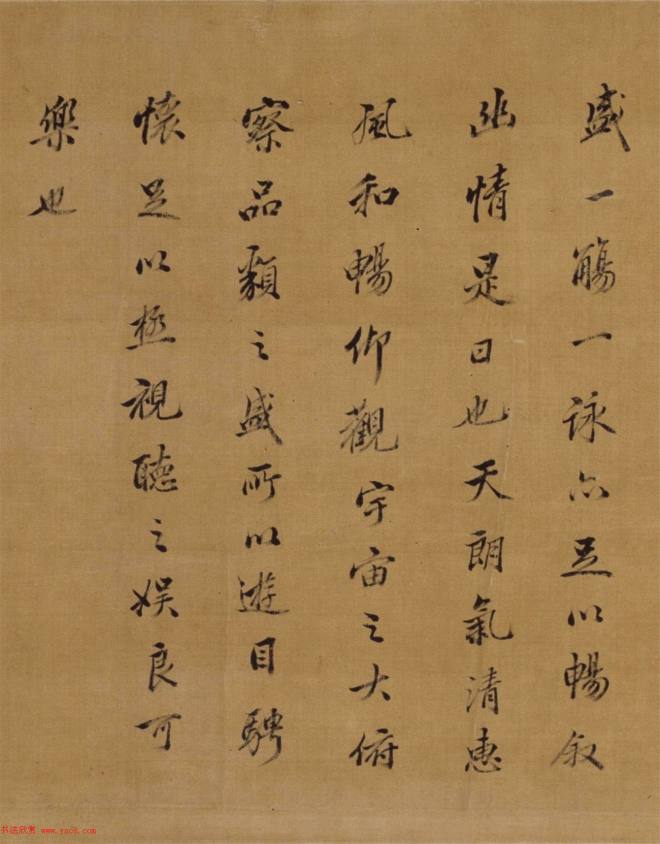 盛一觴一詠亦足以暢叙
幽情是日也天朗氣清惠
風和暢仰觀宇宙之大俯
察品類之盛所以遊目騁
懷足以極視聽之娛良可
樂也
书法欣赏 www.yac8.com